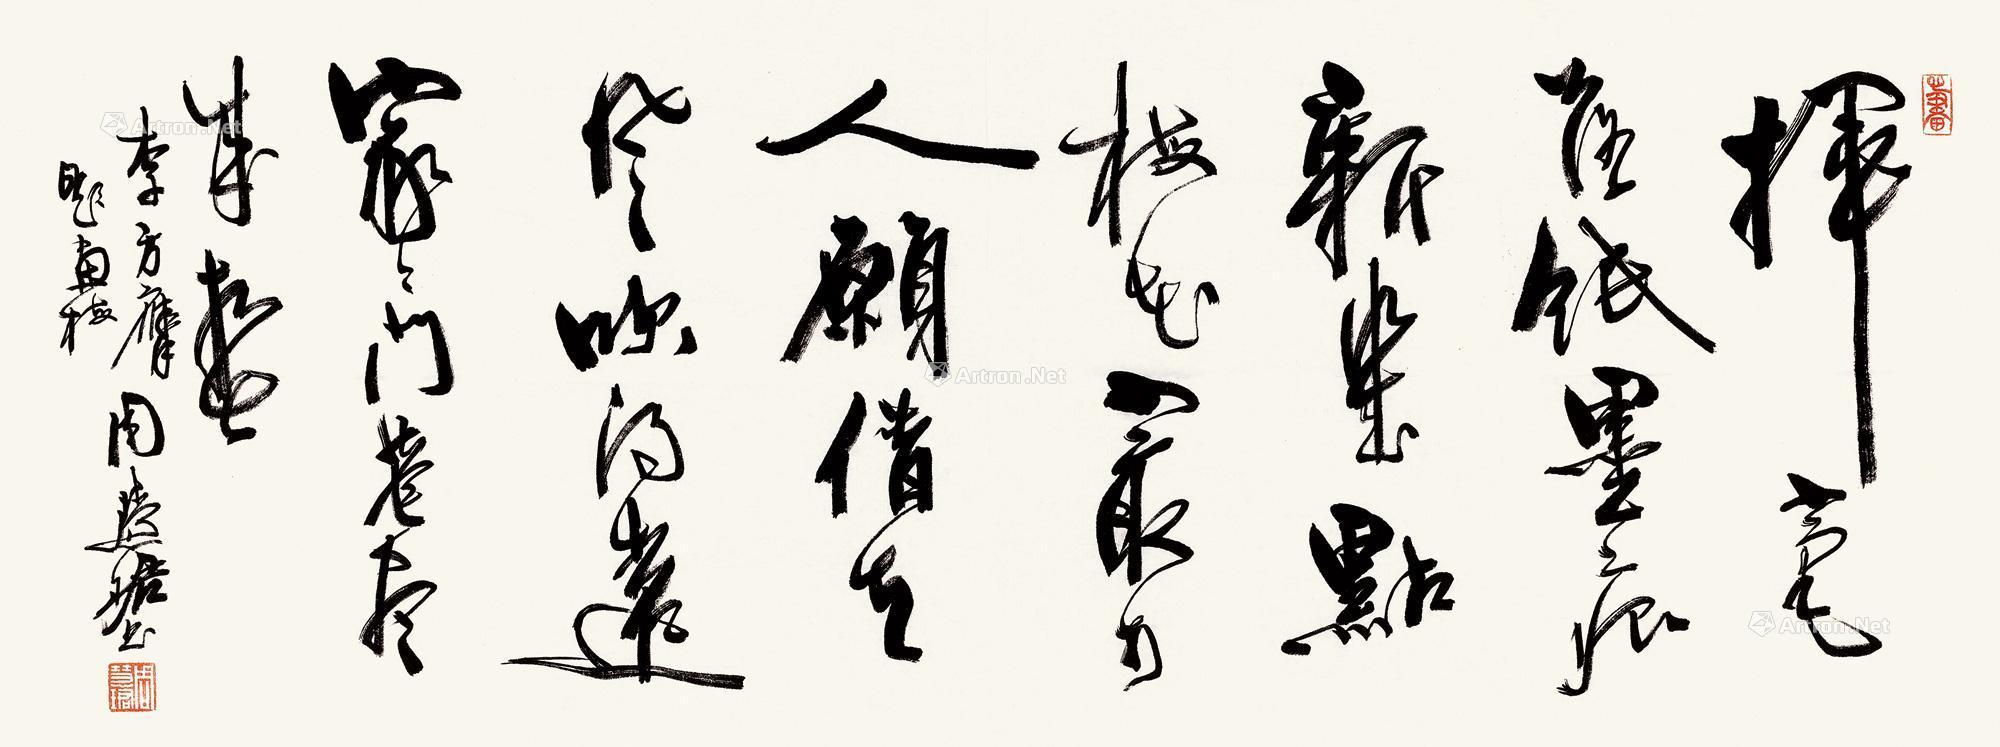 揮毫
落紙墨痕
新幾點
梅花最可
人願借天
风吹得遠
家々門巷盡
成春
李方膺
題畫梅
周慧珺书
周慧珺
Artron.Net
Artron.Net
Artron.Net